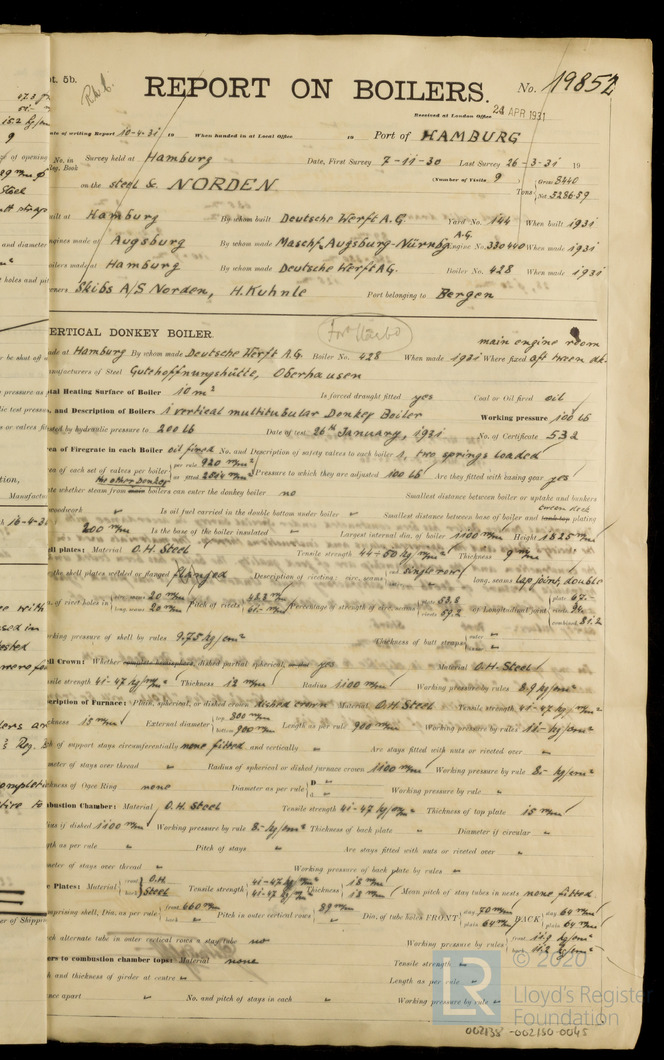 REPORT ON BOILERS.
No. 19852
Received at London Office
24 APR 1931
Date of writing Report 10-4-31 19 When handed in at Local Office 19 Port of HAMBURG
No. in Survey held at Hamburg Date, First Survey 7-11-30 Last Survey 26-3-31 19
Reg. Book.
(Number of Visits 9
on the steel NORDEN Tons Gross 8440 Net 5286.59
Built at Hamburg By whom built Deutsche Werft A.G. Yard No. 144 When built 1931
Engines made at Augsburg By whom made Maschf. Augsburg-Nürnbg A.G. Engine No. 330440 When made 1931
Boilers made at Hamburg By whom made Deutsche Werft A.G. Boiler No. 428 When made 1931
Owners Skibs A/S Norden, H. Kuhnle Port belonging to Bergen
VERTICAL DONKEY BOILER.
main engine room
Made at Hamburg By whom made Deutsche Werft A.G. Boiler No. 428 When made 1931 Where fixed aft tween dk.
Manufacturers of Steel Gutehoffnungshütte, Oberhausen
Total Heating Surface of Boiler 10 m² Is forced draught fitted yes Coal or oil fired oil
No. and Description of Boilers 1 vertical multitubular Donkey Boiler Working pressure 100 lb
Tested by hydraulic pressure to 200 lb Date of test 26th January, 1931 No. of Certificate 532
Area of Firegrate in each Boiler oil fired No. and Description of safety valves to each boiler 1, two springs loaded
Area of each set of valves per boiler per rule 920 m/m² as fitted Pressure to which they are adjusted 100 lb Are they fitted with easing gear yes
State whether steam from main boilers can enter the donkey boiler no Smallest distance between boiler or uptake and bunkers
or woodwork Is oil fuel carried in the double bottom under boiler Smallest distance between base of boiler and tank top plating
200 m/m Is the base of the boiler insulated Largest internal dia. of boiler 1100 m/m Height 1825 m/m
Shell plates: Material O.H. Steel Tensile strength 44-50 kg/m/m² Thickness 9 m/m
Are the shell plates welded or flanged flanged Description of riveting: circ. seams single row long. seams lap joint, double
Dia. of rivet holes in circ. seams 20 m/m long. seams 20 m/m Pitch of rivets 48.3 m/m 61.- m/m Percentage of strength of circ. seams plate 58.8 rivets 57.2 of Longitudinal joint plate 67.- combined 81.2
Working pressure of shell by rules 9.75 kg/cm² Thickness of butt straps
Shell Crown: Whether complete hemisphere, dished partial spherical, or flat yes Material O.H. Steel
Tensile strength 41-47 kg/m/m² Thickness 13 m/m Radius 1100 m/m Working pressure by rules 8.9 kg/cm²
Description of Furnace: Plain, spherical, or dished crown dished crown Material O.H. Steel Tensile strength 41-47 kg/m/m²
Thickness 15 m/m External diameter top 800 m/m bottom 900 m/m Length as per rule 900 m/m Working pressure by rules 11.- kg/cm²
Pitch of support stays circumferentially none fitted and vertically Are stays fitted with nuts or riveted over
Diameter of stays over thread Radius of spherical or dished furnace crown 1100 m/m Working pressure by rule 8.- kg/cm²
Thickness of Ogee Ring none Diameter as per rule D d Working pressure by rule
Combustion Chamber: Material O.H. Steel Tensile strength 41-47 kg/m/m² Thickness of top plate 15 m/m
Radius if dished 1100 m/m Working pressure by rule 8.- kg/cm² Thickness of back plate Diameter if circular
Length as per rule Pitch of stays Are stays fitted with nuts or riveted over
Diameter of stays over thread Working pressure of back plate by rules
Tube Plates: Material front O.H. back Steel Tensile strength 41-47 kg/m/m² 41-47 kg/m/m² Thickness 18 m/m 18 m/m Mean pitch of stay tubes in nests none fitted
If comprising shell, Dia. as per rule front 660 m/m back Pitch in outer vertical rows 89 m/m Dia. of tube holes FRONT stay 70 m/m plain 64 m/m BACK stay 64 m/m plain 64 m/m
Is each alternate tube in outer vertical rows a stay tube no Working pressure by rules front 11.9 kg/cm² back 11.2 kg/cm²
Girders to combustion chamber tops: Material none Tensile strength
Depth and thickness of girder at centre Length as per rule
Distance apart No. and pitch of stays in each Working pressure by rule
© 2020
Lloyd's Register
Foundation
002138-002150-0045